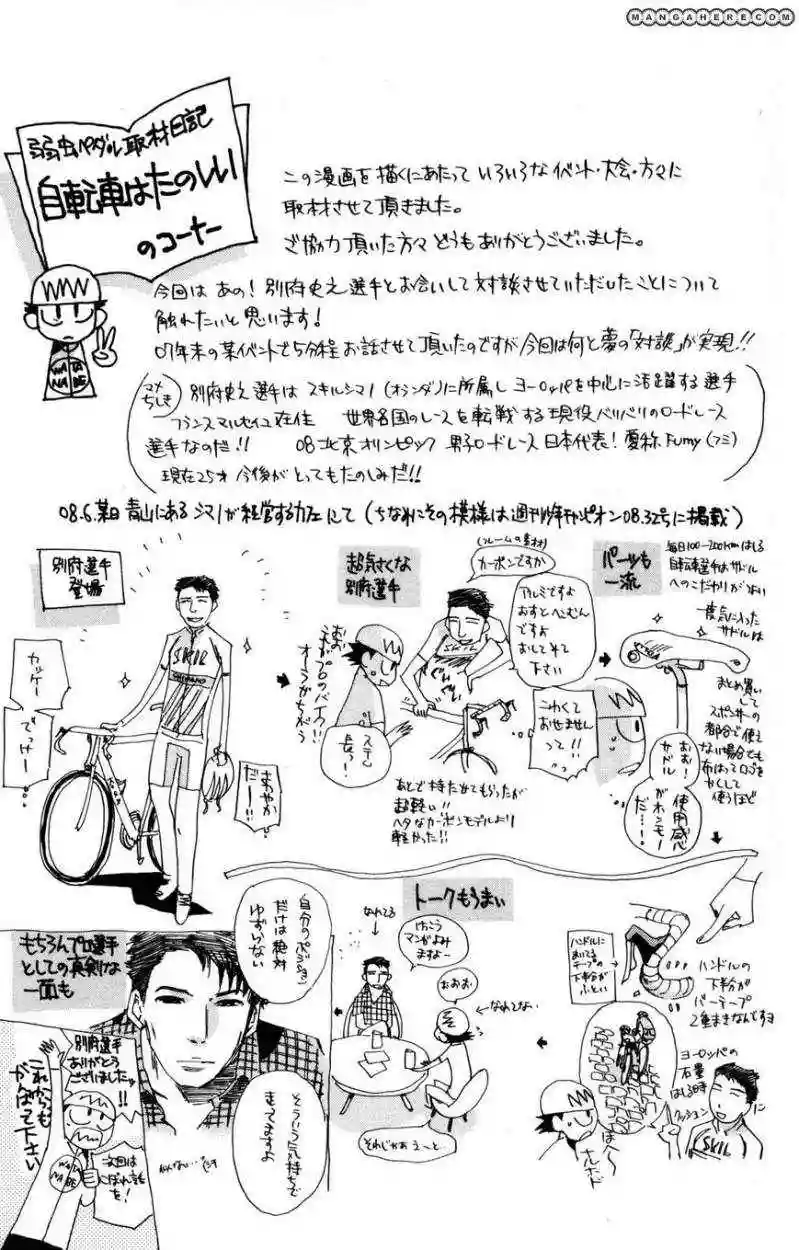 MANGAHERE.COM
弱虫ペダル取材日記
自転車はたのしい
のコーナー
この漫画を描くにあたって いろいろな イベント・大会・方々に
取材させて頂きました。
ご協力頂いた方々 どうもありがとうございました。
今回は あの! 別府史之選手とお会いして対談させていただいたことについて
触れたいと思います!
07年末の某イベントで5分程お話させて頂いたのですが今回は何と夢の「対談」が実現!!
マメ
ちしき
別府史之選手は スキルシマノ(オランダ)に所属し ヨーロッパを中心に活躍する選手
フランスマルセイユ在住 世界各国のレースを転戦する現役バリバリのロードレース
選手なのだ!! 08北京オリンピック 男子ロードレース日本代表! 愛称Fumy(フミ)
現在25才 今後がとってもたのしみだ!!
08.6.某日 青山にある シマノが経営するカフェにて(ちなみにその模様は週刊少年チャンピオン08.32号に掲載)
別府選手
登場
カッケー
でっけー
SKIL
SHIMANO
さわやか
だー!!
超気さくな
別府選手
(フレームの素材)
カーボンですか
アルミですよ
おすとへこむん
ですよ
おしてみて
下さい
SKIL
おお
これがプロのバイク!!
オーラがちがう
ステム
長っ!
こわくて
おせません
って!!
あとで持たせてもらったが
超軽い!!
ヘタなカーボンモデルより
軽かった!!
パーツも
一流
毎日100~200kmはしる
自転車選手はサドル
へのこだわりがつよい
一度気に入った
サドルは
まとめ買い
して
スポンサーの
都合で使え
ない場合でも
布はってロゴを
かくして
使うほど
おお!
サドル
使用感
がホンモノ
だ…!
ハンドルに
まいてる
テープの
下半分が
ぶっとい
ハンドルの
下半分が
バーテープ
2重まきなんですヨ
ヨーロッパの
石畳
はしる時
クッション
に
SKIL
はへ〜
ナルホド
トークもうまい
なれてる
けっこう
マンガよみ
ますよー
おおお
←なれてない
それじゃあえーと…
もちろんプロ選手
としての真剣な
一面も
自分のポジション
だけは絶対
ゆずらない
そういう気持ちで
走ってますよ
別府選手
ありがとう
ございましたッ
!!
これからも
がんばって下さい
次回は
こぼれ話
を!
WA TA
NA BE